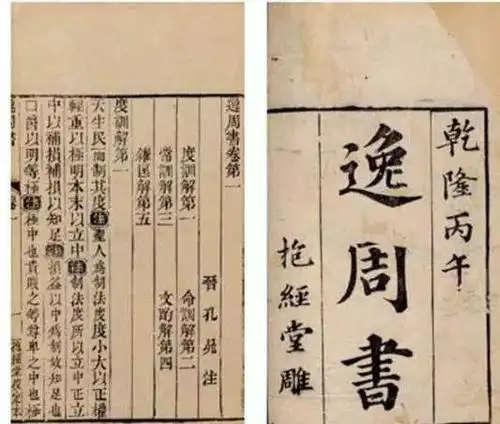 乾隆丙午
逸周書
抱經堂雕
逸周書卷第一
晉孔晁注
度訓解第一 命訓解第二
常訓解第三 文酌解第四
糴匡解第五
度訓解第一
天生民而制其度注聖人爲制法度度小大以正權
輕重以極明本末以立中注制法度所以立中正立
中以補損補損以知足注損益以中爲制故知足也
□爵以明等極注極中也貴賤之等尊卑之中也極
周書 卷一 一 抱經堂校定本